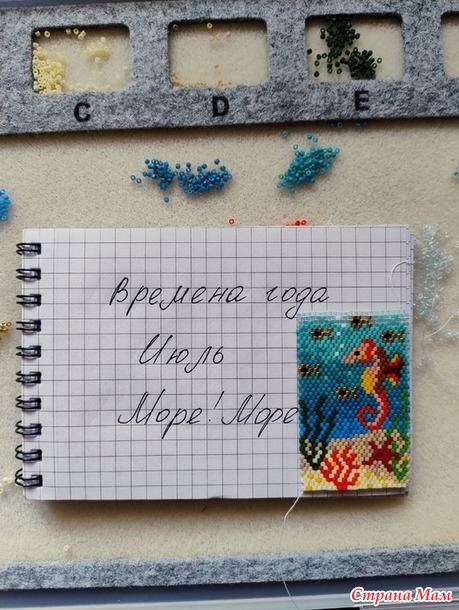 C D E
Времена года
Июль
Море! Море
Страна Мам